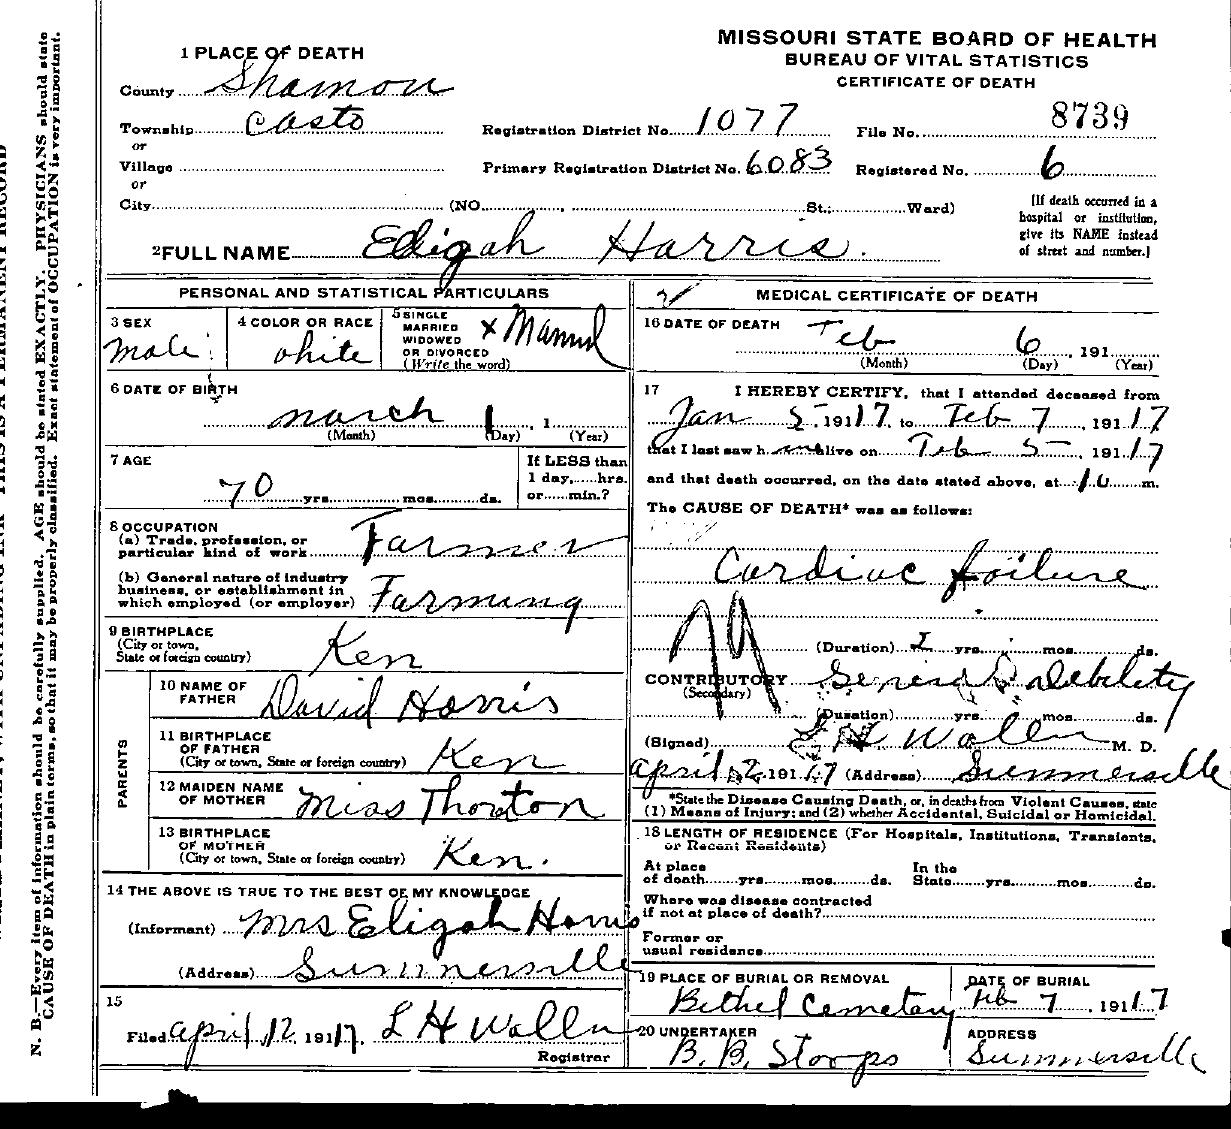 MISSOURI STATE BOARD OF HEALTH
BUREAU OF VITAL STATISTICS
CERTIFICATE OF DEATH
1 PLACE OF DEATH
County Shannon
Township Casto
or
Village
or
City (NO. , St.; Ward)
Registration District No. 1077
Primary Registration District No. 6083
File No. 8739
Registered No. 6
[If death occurred in a
hospital or institution,
give its NAME instead
of street and number.]
2 FULL NAME Eligah Harris.
PERSONAL AND STATISTICAL PARTICULARS
3 SEX
Male
4 COLOR OR RACE
White
5 SINGLE
MARRIED
WIDOWED
OR DIVORCED
(Write the word)
X Married
6 DATE OF BIRTH
March 1, 1
(Month) (Day) (Year)
7 AGE
70 yrs. mos. ds.
If LESS than
1 day, hrs.
or min.?
8 OCCUPATION
(a) Trade, profession, or
particular kind of work Farmer
(b) General nature of industry
business, or establishment in
which employed (or employer) Farming
9 BIRTHPLACE
(City or town,
State or foreign country)
Ken
PARENTS
10 NAME OF
FATHER
David Harris
11 BIRTHPLACE
OF FATHER
(City or town, State or foreign country) Ken
12 MAIDEN NAME
OF MOTHER Miss Thornton
13 BIRTHPLACE
OF MOTHER
(City or town, State or foreign country) Ken.
14 THE ABOVE IS TRUE TO THE BEST OF MY KNOWLEDGE
(Informant) Mrs Eligah Harris
(Address) Summersville
15
Filed April 12 1917, L H Walln
Registrar
MEDICAL CERTIFICATE OF DEATH
16 DATE OF DEATH
Feb 6, 191
(Month) (Day) (Year)
17 I HEREBY CERTIFY, that I attended deceased from
Jan 5, 1917, to Feb 7, 1917
that I last saw h alive on Feb 5, 1917
and that death occurred, on the date stated above, at 10 m.
The CAUSE OF DEATH* was as follows:
Cardiac failure
79
(Duration) 2 yrs. mos. ds.
CONTRIBUTORY Debility
(Secondary)
(Duration) yrs. mos. ds.
(Signed) L H Walln M. D.
April 1917 (Address) Summersville
*State the Disease Causing Death, or, in deaths from Violent Causes, state
(1) Means of Injury; and (2) whether Accidental, Suicidal or Homicidal.
18 LENGTH OF RESIDENCE (For Hospitals, Institutions, Transients,
or Recent Residents)
At place
of death yrs. mos. ds.
In the
State yrs. mos. ds.
Where was disease contracted
if not at place of death?
Former or
usual residence
19 PLACE OF BURIAL OR REMOVAL
Bethel Cemetary
DATE OF BURIAL
Feb 7, 1917
20 UNDERTAKER
B. B. Stoops
ADDRESS
Summersville
N. B.—Every item of information should be carefully supplied. AGE should be stated EXACTLY. PHYSICIANS should state
CAUSE OF DEATH in plain terms, so that it may be properly classified. Exact statement of OCCUPATION is very important.